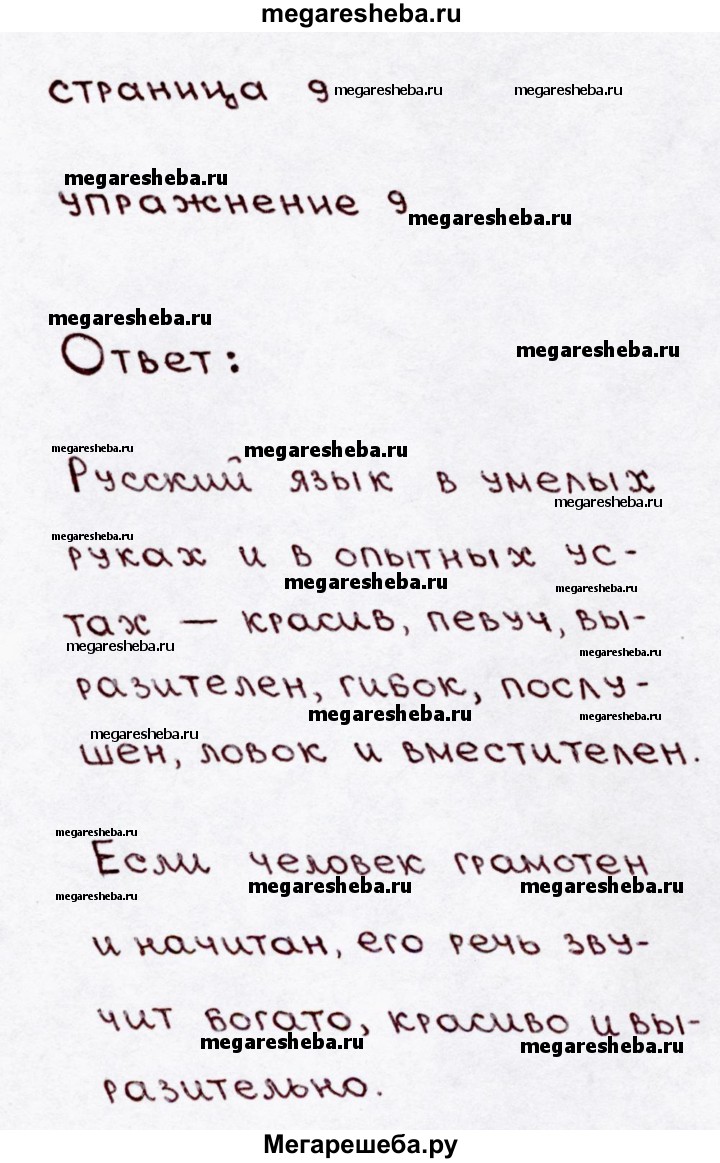 megaresheba.ru
страница 9 megaresheba.ru megaresheba.ru
megaresheba.ru
упражнение 9 megaresheba.ru
megaresheba.ru
Ответ: megaresheba.ru
megaresheba.ru megaresheba.ru
Русский язык в умелых
megaresheba.ru
megaresheba.ru
руках и в опытных ус-
megaresheba.ru megaresheba.ru
тах — красив, певуч, вы-
megaresheba.ru megaresheba.ru
разителен, гибок, послу-
megaresheba.ru megaresheba.ru
megaresheba.ru
шен, ловок и вместителен.
megaresheba.ru
Если человек грамотен
megaresheba.ru megaresheba.ru megaresheba.ru
и начитан, его речь зву-
чит богато, красиво и вы-
megaresheba.ru megaresheba.ru
разительно.
Мегарешеба.ру